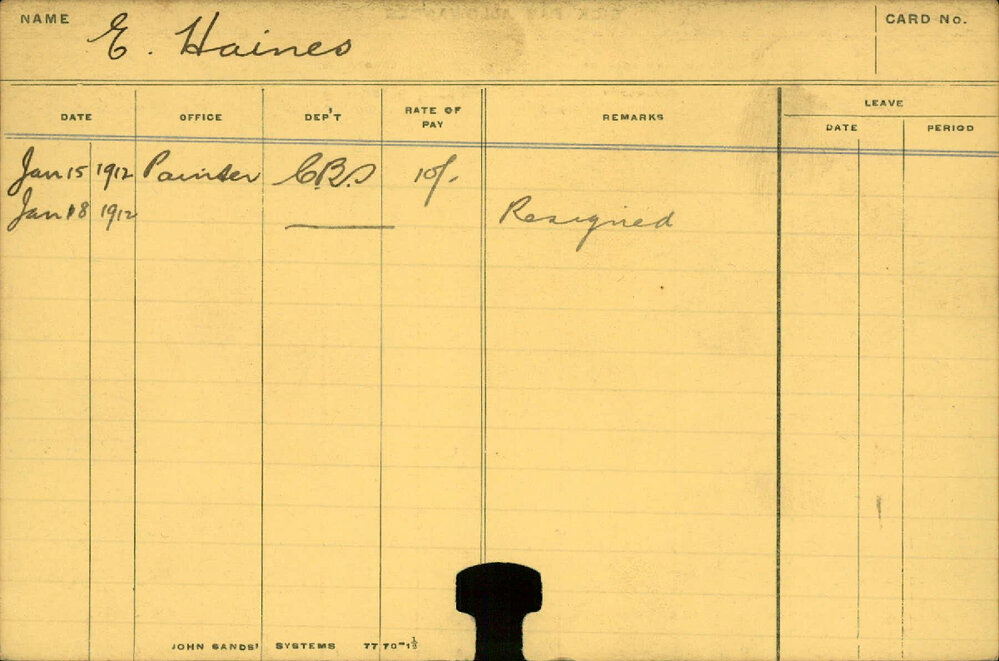 NAME E. Haines CARD No.
DATE OFFICE DEP'T RATE OF PAY REMARKS LEAVE
DATE PERIOD
Jan 15 1912 Painter C.B.S 10/-
Jan 18 1912 Resigned
JOHN SANDS' SYSTEMS 7770-1½